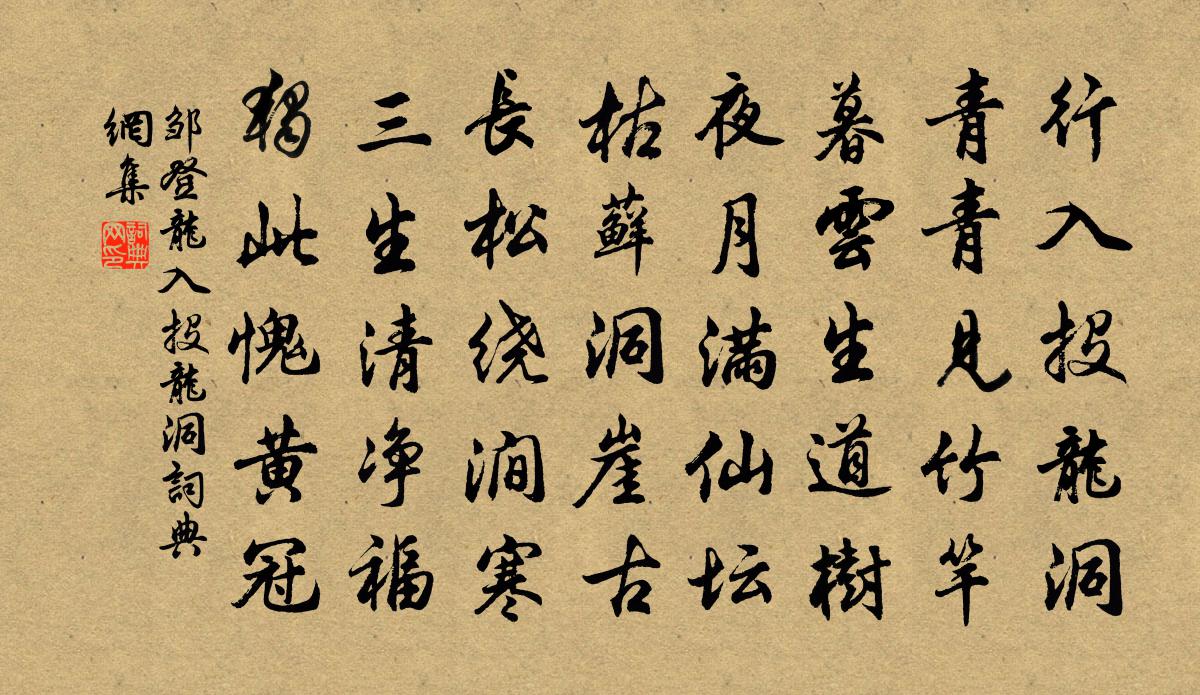 行入投龍洞
青青見竹竿
暮雲生道樹
夜月满仙坛
枯蘚洞崖古
長松绕澗寒
三生清净福
獨此愧黄冠
邹登龍入投龍洞詞典
網集
詞典网印